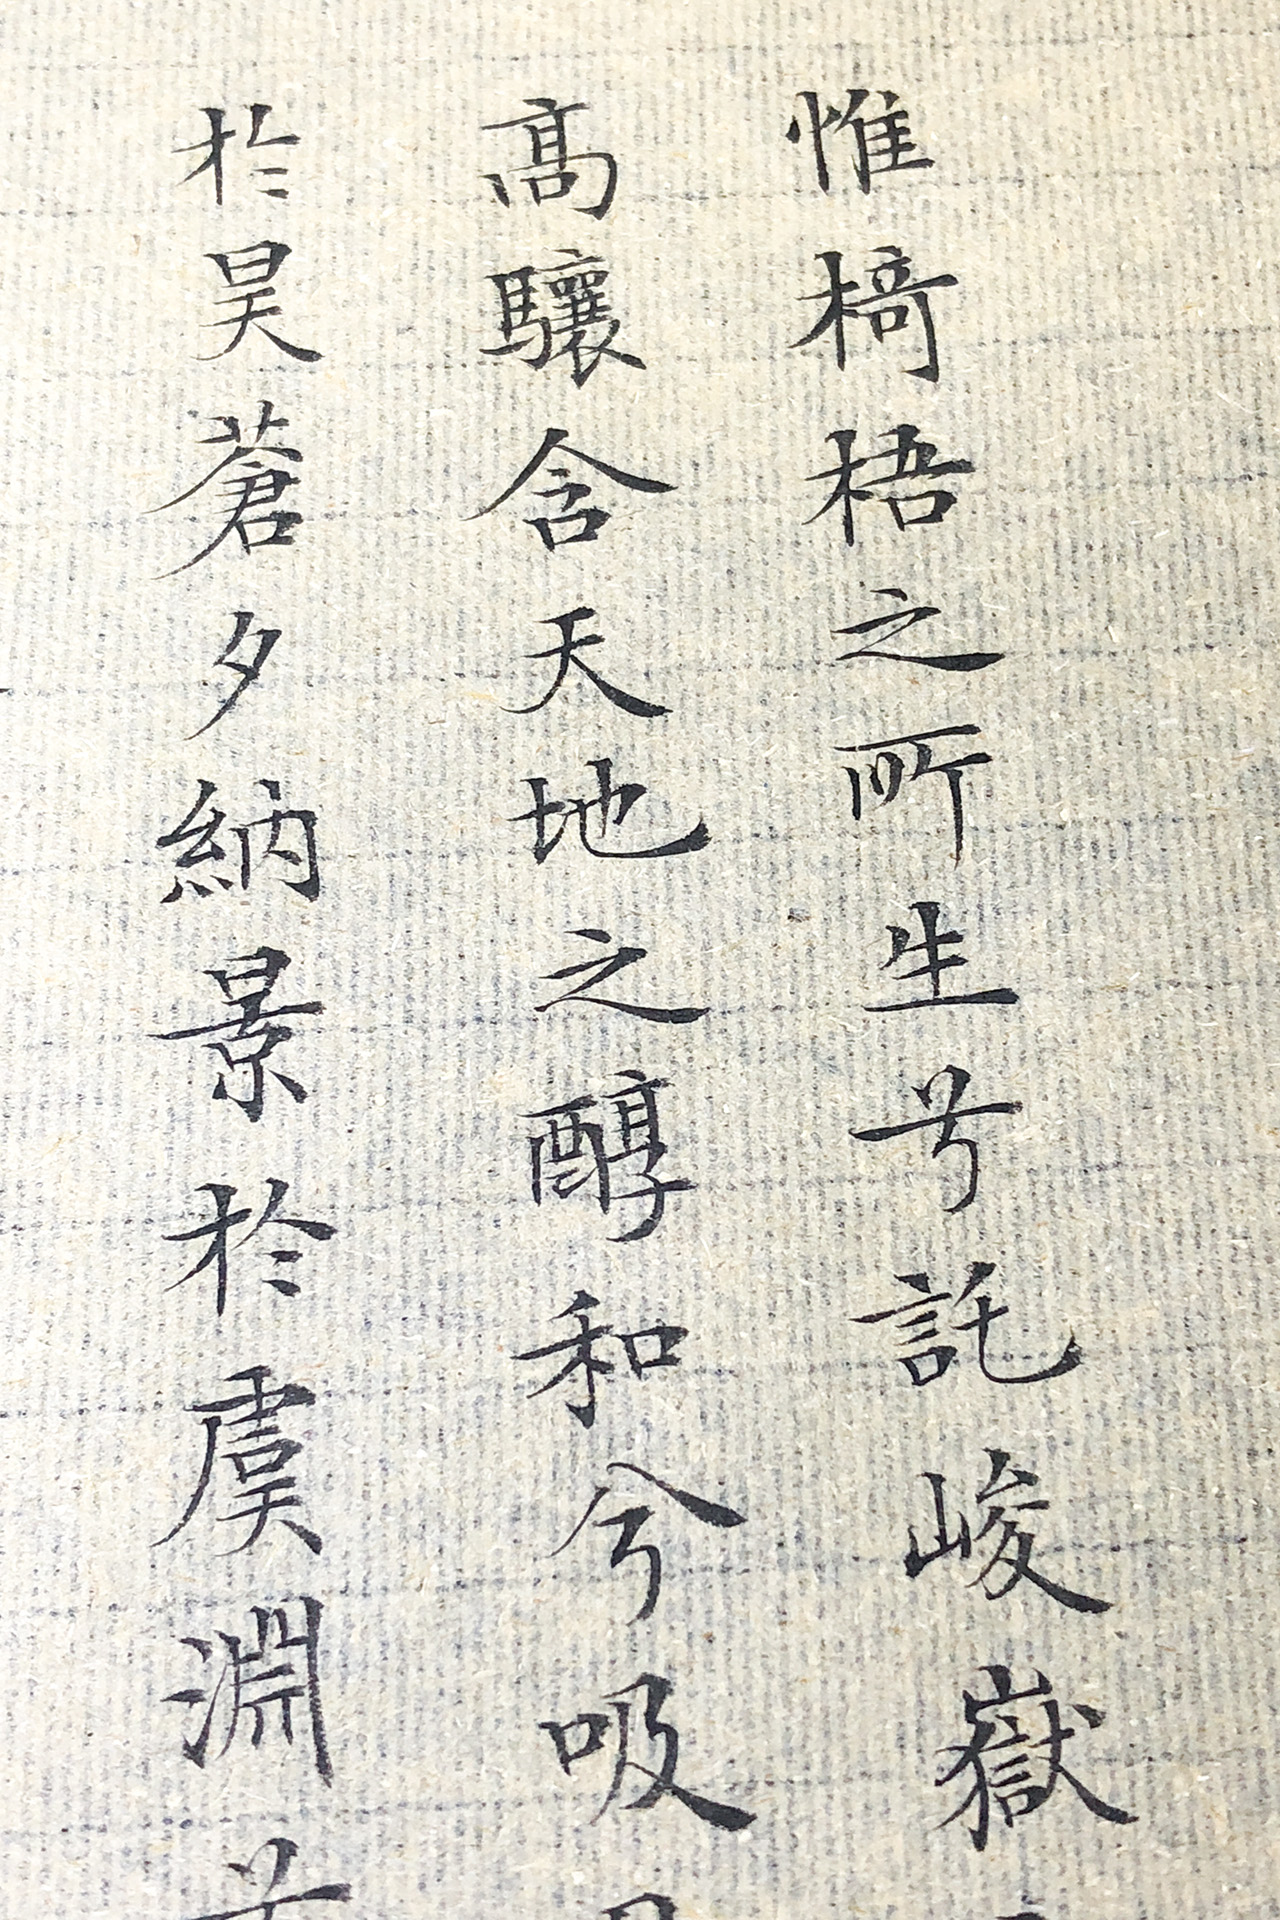 惟椅梧之所生兮託峻嶽
髙驤含天地之醇和兮吸
於昊蒼夕納景於虞淵